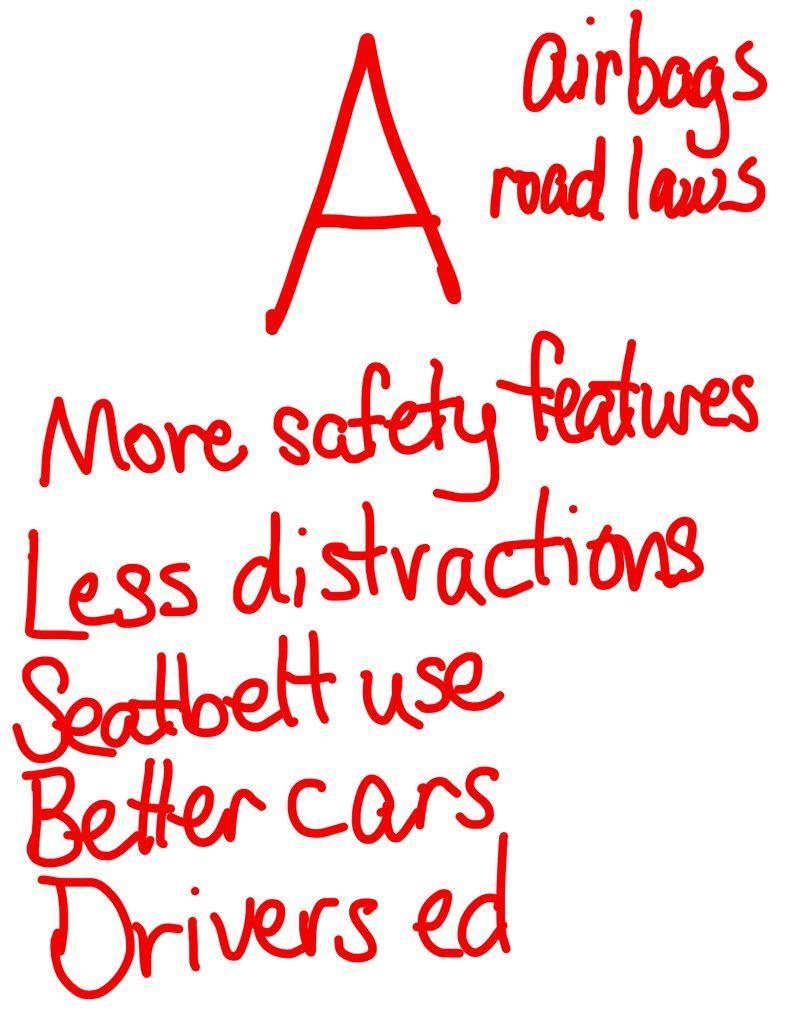 A
airbags
road laws
More safety features
Less distractions
Seatbelt use
Better cars
Drivers ed